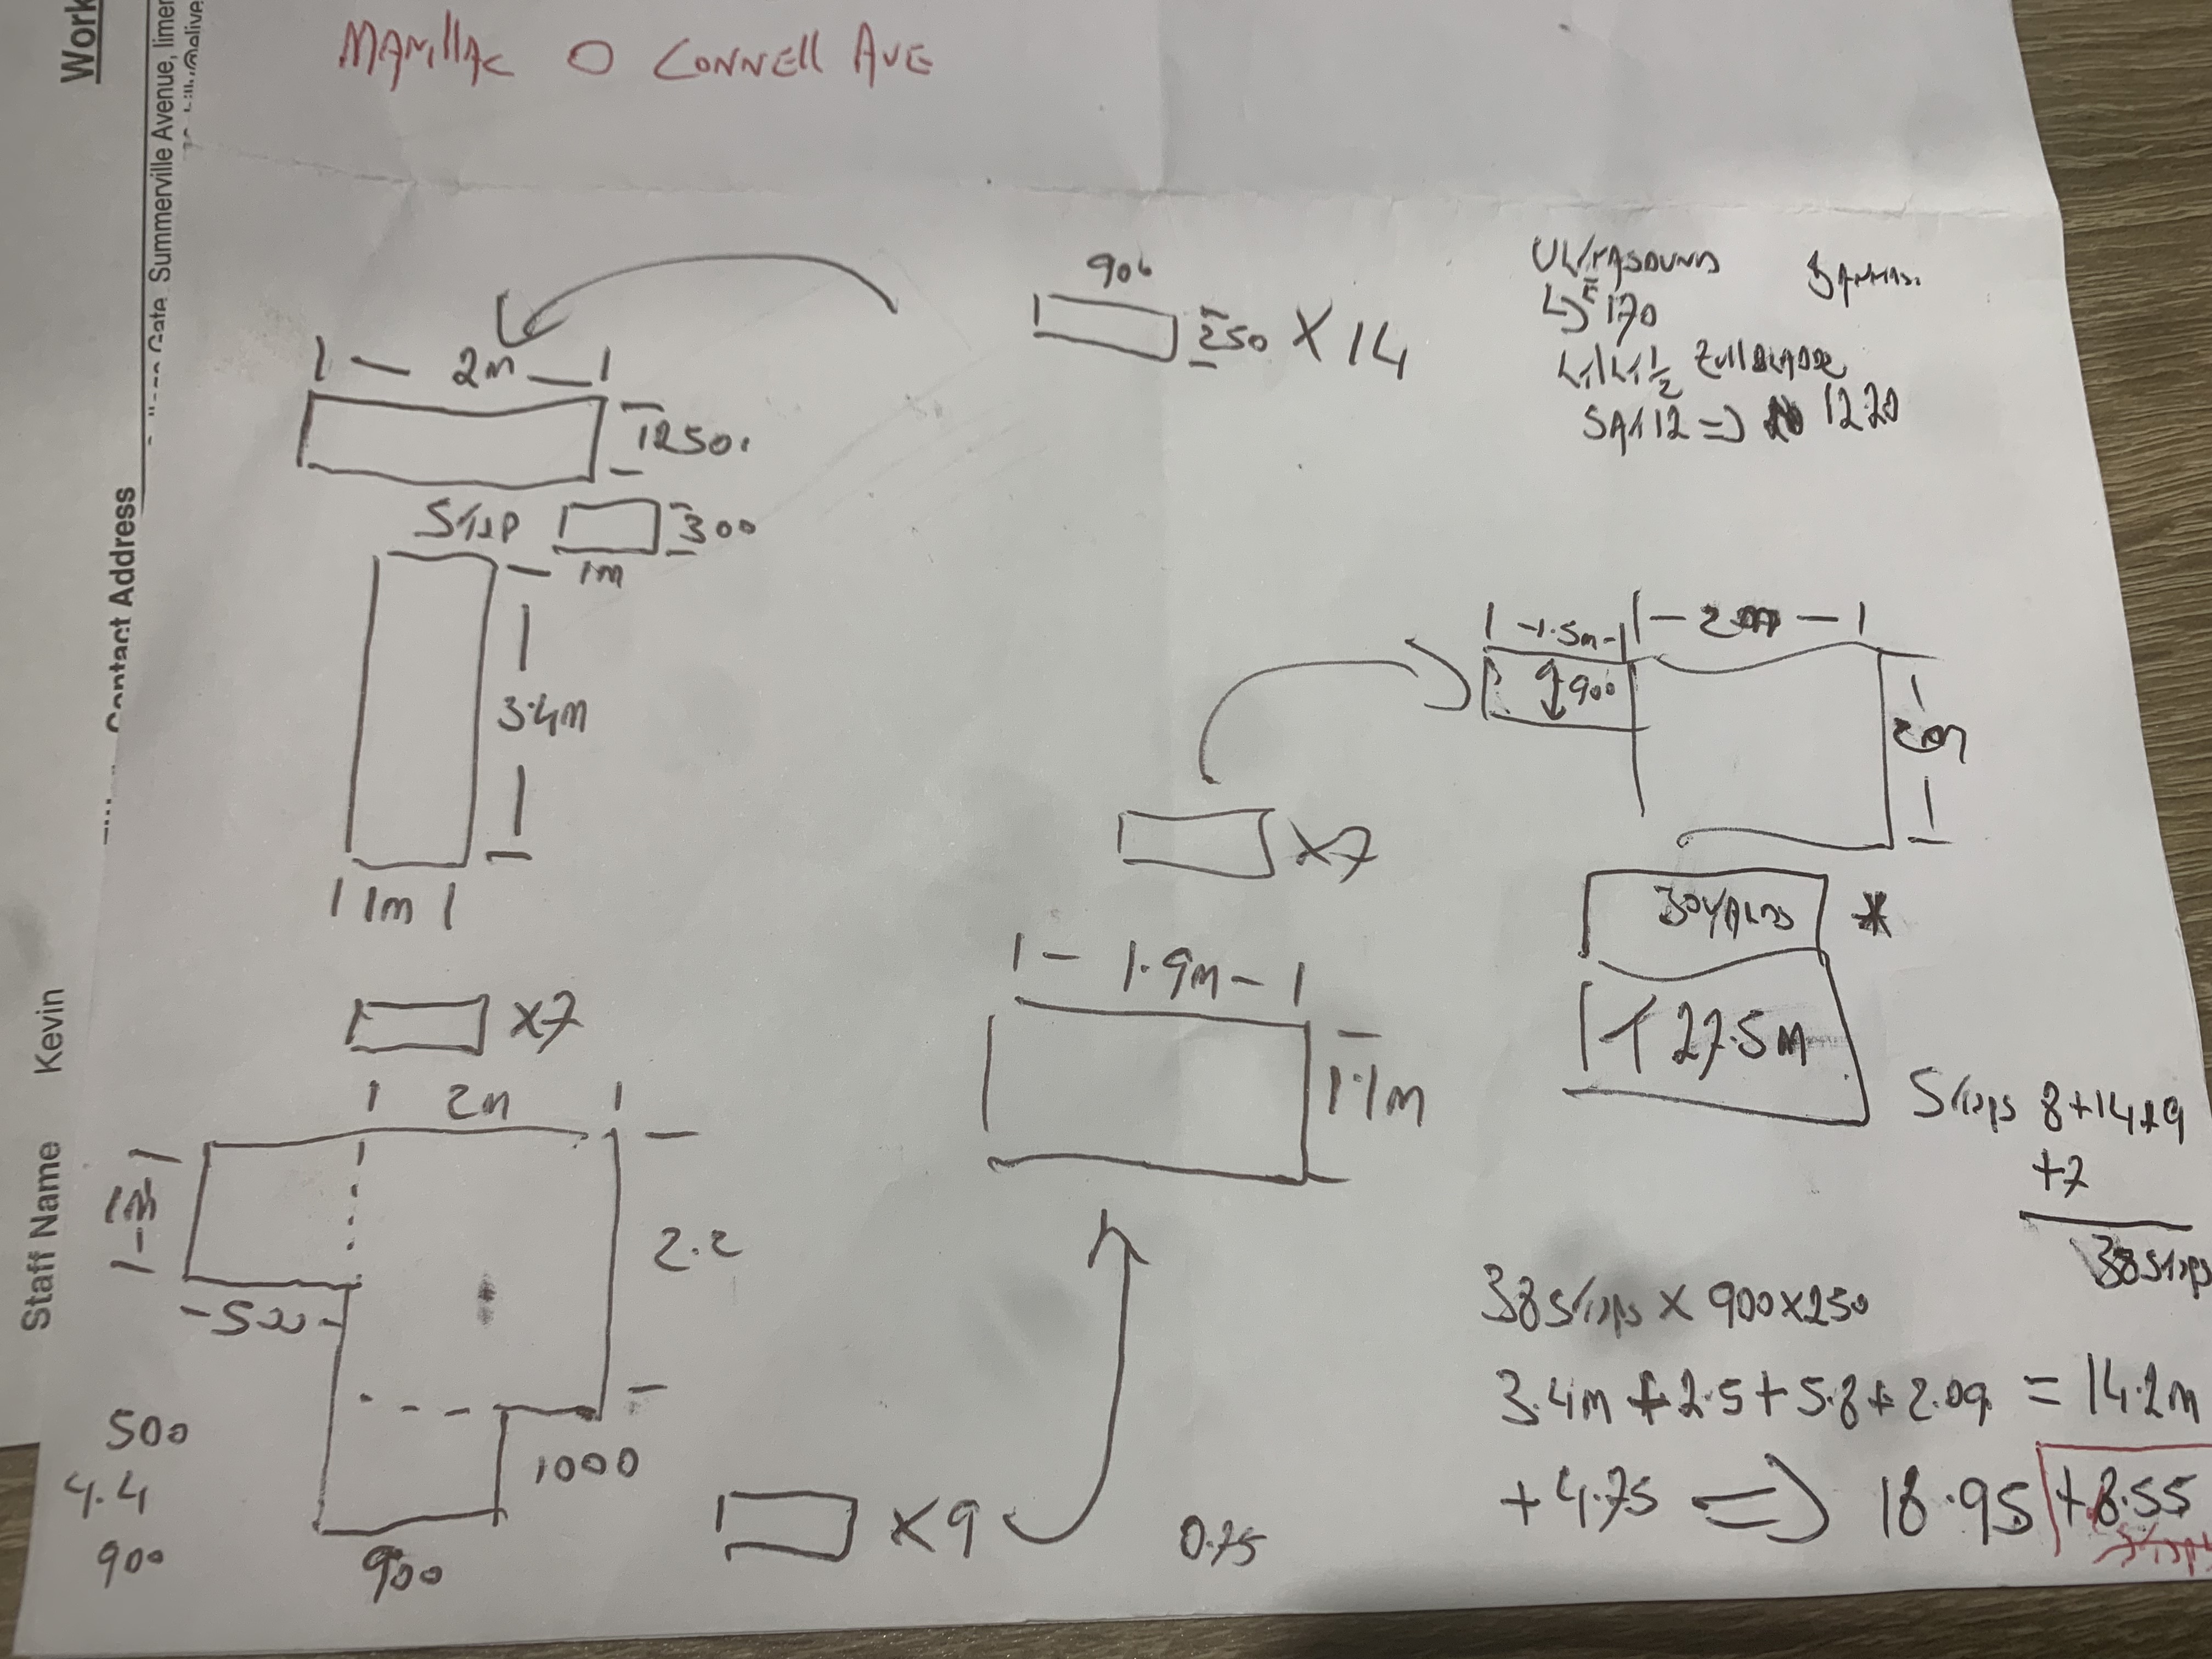 MARILLAC O CONNELL AVE
Work
Summerville Avenue, limer
Contact Address
Staff Name Kevin
900
250 X 14
2m
1250
Step
300
1m
3.4m
1m
X7
2m
2.2
500
1000
900
500
4.4
900
X9
0.75
1.9m
1.1m
X7
ULTRASOUND
170
1220
1.5m
2m
900
2m
30YARDS *
27.5m
Steps 8+14+9
+7
38Steps
38Steps X 900x250
3.4m + 2.5 + 5.8 + 2.09 = 14.2m
+ 4.75 => 18.95 +8.55